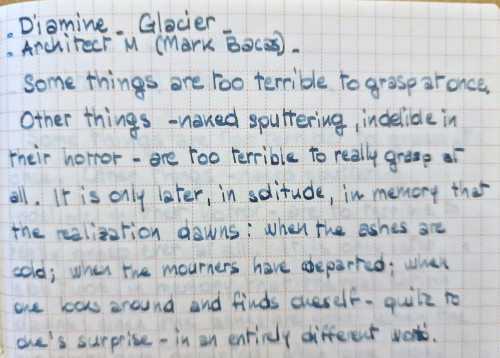 : Diamine - Glacier -
: Architect M (Mark Bacas) -
Some things are too terrible to grasp at once.
Other things - naked sputtering, indelible in
their horror - are too terrible to really grasp at
all. It is only later, in solitude, in memory that
the realization dawns: when the ashes are
cold; when the mourners have departed; when
one looks around and finds oneself - quite to
one's surprise - in an entirely different world.